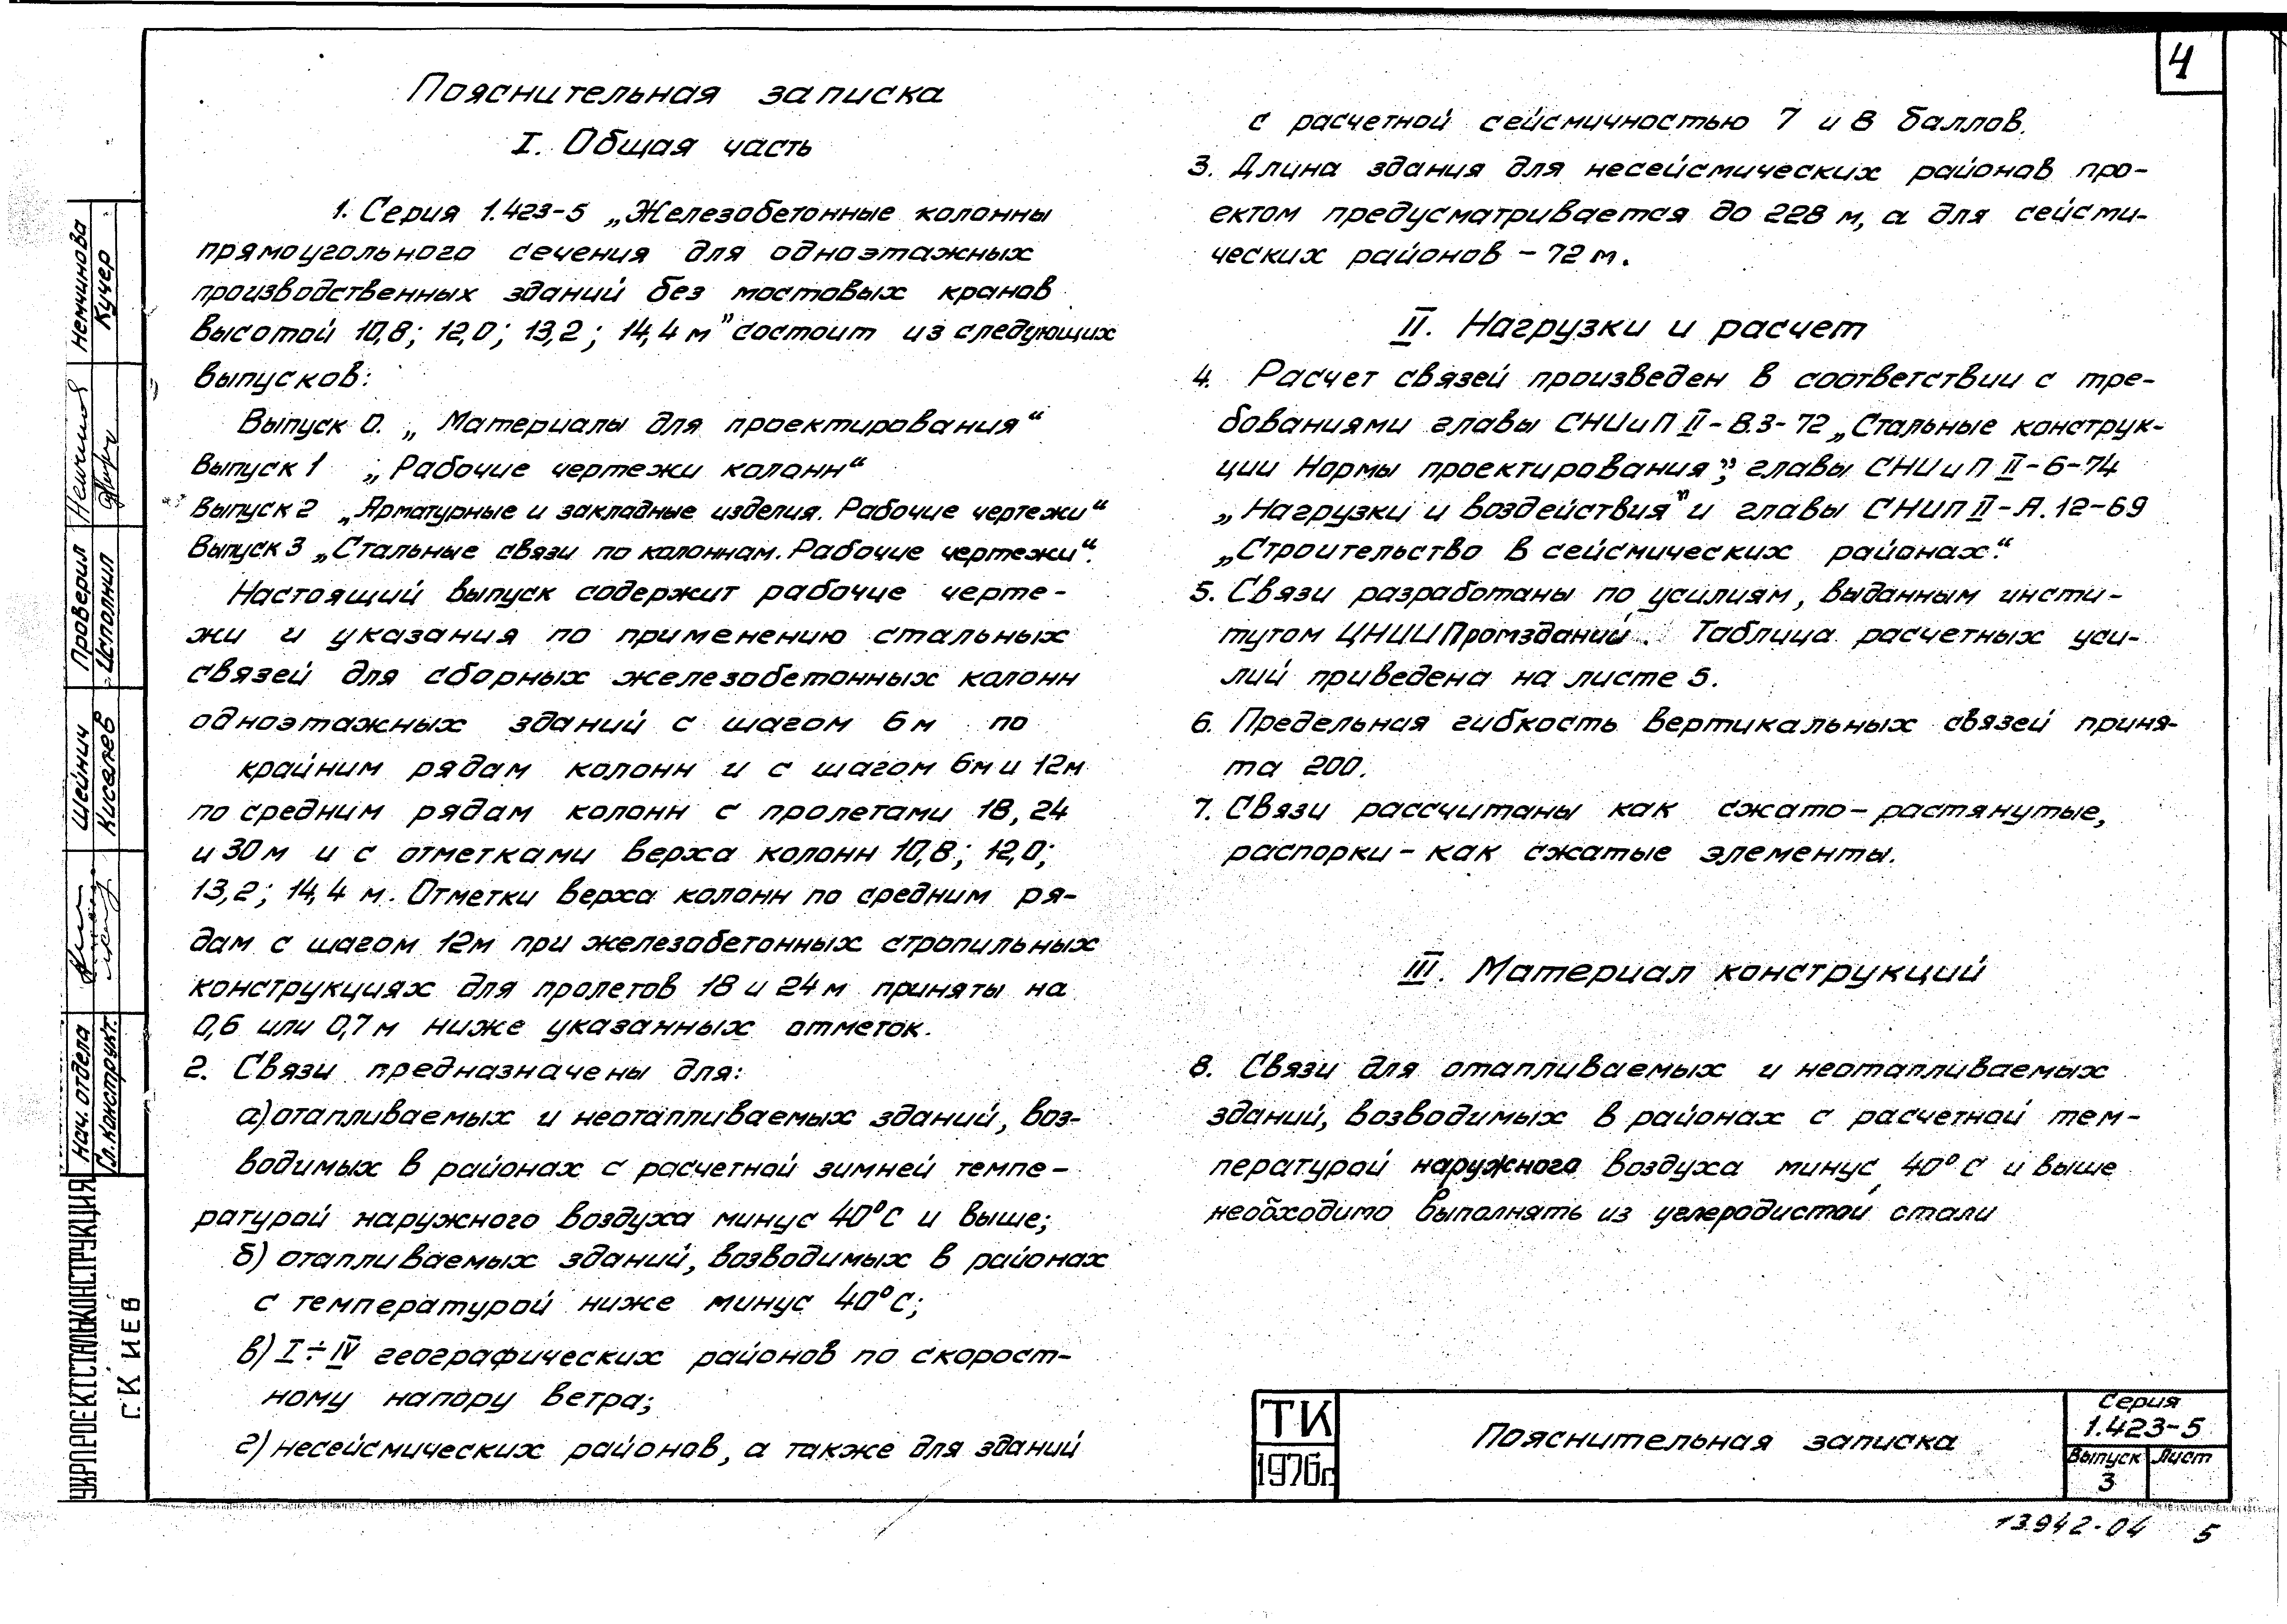 4
Пояснительная записка
I. Общая часть
1. Серия 1.423-5 „Железобетонные колонны
прямоугольного сечения для одноэтажных
производственных зданий без мостовых кранов
высотой 10,8; 12,0; 13,2; 14,4 м" состоит из следующих
выпусков:
Выпуск 0. „Материалы для проектирования“
Выпуск 1 „Рабочие чертежи колонн“
Выпуск 2 „Арматурные и закладные изделия. Рабочие чертежи“
Выпуск 3 „Стальные связи по колоннам. Рабочие чертежи“.
Настоящий выпуск содержит рабочие черте-
жи и указания по применению стальных
связей для сборных железобетонных колонн
одноэтажных зданий с шагом 6 м по
крайним рядам колонн и с шагом 6м и 12м
по средним рядам колонн с пролетами 18, 24
и 30 м и с отметками верха колонн 10,8; 12,0;
13,2; 14,4 м. Отметки верха колонн по средним ря-
дам с шагом 12м при железобетонных стропильных
конструкциях для пролетов 18 и 24 м приняты на
0,6 или 0,7 м ниже указанных отметок.
2. Связи предназначены для:
а) отапливаемых и неотапливаемых зданий, воз-
водимых в районах с расчетной зимней темпе-
ратурой наружного воздуха минус 40°С и выше;
б) отапливаемых зданий, возводимых в районах
с температурой ниже минус 40°С;
в) I÷IV географических районов по скорост-
ному напору ветра;
г) несейсмических районов, а также для зданий
с расчетной сейсмичностью 7 и 8 баллов.
3. Длина здания для несейсмических районов про-
ектом предусматривается до 228 м, а для сейсми-
ческих районов – 72 м.
II. Нагрузки и расчет
4. Расчет связей произведен в соответствии с тре-
бованиями главы СНиП II-В.3-72 „Стальные конструк-
ции Нормы проектирования”; главы СНиП II-6-74
„Нагрузки и воздействия" и главы СНиП II-А.12-69
„Строительство в сейсмических районах“.
5. Связи разработаны по усилиям, выданным инсти-
тутом ЦНИИПромзданий. Таблица расчетных уси-
лий приведена на листе 5.
6. Предельная гибкость вертикальных связей приня-
та 200.
7. Связи рассчитаны как сжато-растянутые,
распорки – как сжатые элементы.
III. Материал конструкций
8. Связи для отапливаемых и неотапливаемых
зданий, возводимых в районах с расчетной тем-
пературой наружного воздуха минус 40°С и выше
необходимо выполнять из углеродистой стали
ТК
1976г
Пояснительная записка
Серия
1.423-5
Выпуск Лист
3
13942-04 5
Немчинова
Кучер
Проверил
Исполнил
Шейнич
Киселев
Нач. отдела
Гл. конструкт.
УКРПРОЕКТСТАЛЬКОНСТРУКЦИЯ
г. КИЕВ